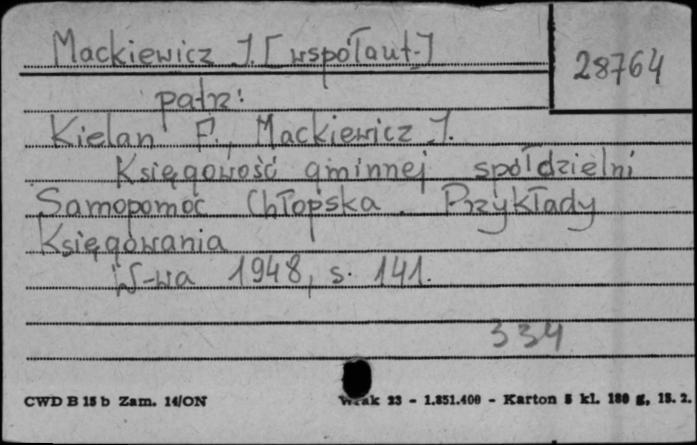 Mackiewicz J. [współaut.]
28764
patrz:
Kielan F., Mackiewicz J.
Księgowość gminnej spółdzielni
Samopomoc Chłopska. Przykłady
Księgowania
W-wa 1948, s. 141.
334
CWD B 15 b Zam. 14/ON
23 - 1.851.400 - Karton 5 kl. 180 g, 15. 2.